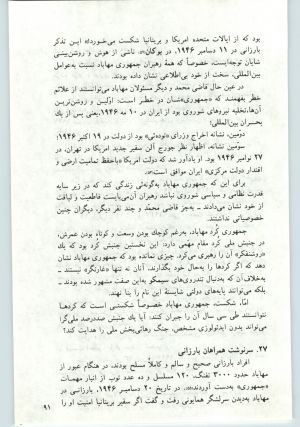 بود که از ایالات متحده امریکا و بریتانیا شکست می‌خورد!» این تذکر
بارزانی در ۱۱ دسامبر ۱۹۴۶، در یوکان»، ناشی از هوش و روشن‌بینی
شایان توجه‌ایست، خصوصاً که همهٔ رهبران جمهوری مهاباد نسبت به‌عوامل
بین‌المللی، سخت از خود بی‌اطلاعی نشان داده بودند.
در عین حال قاضی محمد و دیگر مسئولان مهاباد می‌توانستند از علائم
خطر بفهمند که «جمهوری»شان در خطر است: اولین و روشن‌ترین
آن‌ها، تخلیه نیروهای شوروی بود از ایران در ۱۰ مه ۱۹۴۶، یک‌نوع
بحران بین‌المللی؛
دومین، نشانه اخراج وزرای «توده‌ئی» بود از دولت در ۱۹ اکتبر ۱۹۴۶؛
سومین نشانه، اظهار نظر جورج آلن سفیر جدید امریکا در تهران، در
۲۷ نوامبر ۱۹۴۶ بود. او یادآور شد که دولت امریکا «باحفظ تمامیت ارضی و
اقتدار دولت مرکزی» ایران موافق است»،
برای این که جمهوری مهاباد به‌گونه‌ئی زندگی کند که در زیر سایه
قدرت نظامی و سیاسی شوروی نباشد رهبران آن‌می‌بایست قاطعیت و لیاقت
از خود نشان می‌دادند ـ به‌جز قاضی محمد و چند نفر دیگر، دیگران چنین
خصوصیاتی نداشتند.
جمهوری کُرد مهاباد، به‌رغم کوچک بودن وسعت و کوتاه بودن عمرش،
در جنبش ملی کرد مقام مهمی دارد: این نخستین جنبش کرد بود که یك
«روشنفکر» آن را رهبری می‌کرد. چیزی نمانده بود که جمهوری مهاباد نشان
دهد که اگر کردها را به‌حال خود بگذارند، آنان نه تنها «غارتگر» نیستند ـ
به‌خلاف‌آن که به‌دنبال تندروی‌های سیمکو به‌این صفت مشهور شده بودند ـ
بلکه می‌توانند بایه‌های دولتی شایستهٔ این نام را بنا نهند.
اما، شکست، جمهوری مهاباد خصوصاً شکستی است که کردها
نتوانستند طی سی سال آن را جبران کنند. آیا یك جنبش صددرصد ملی‌گرا
می‌تواند بدون ایدئولوژی مشخص، جنگ رهائی‌بخش ملی را هدایت کند؟
۲۷. سرنوشت همراهان بارزانی
افراد بارزانی صحیح و سالم و کاملاً مسلح بودند، در هنگام عبور از
مهاباد حدود ۳۰۰۰ تفنگ، ۱۲۰ مسلسل و ده عدد توپ از انبار مهمات
«جمهوری» به‌دست آوردند»، در تاریخ ۲۰ دسامبر ۱۹۴۶، بارزانی در
مهاباد به‌دیدن سرلشگر همایونی رفت و گفت اگر سفیر بریتانیا امنیت او را
۹۱